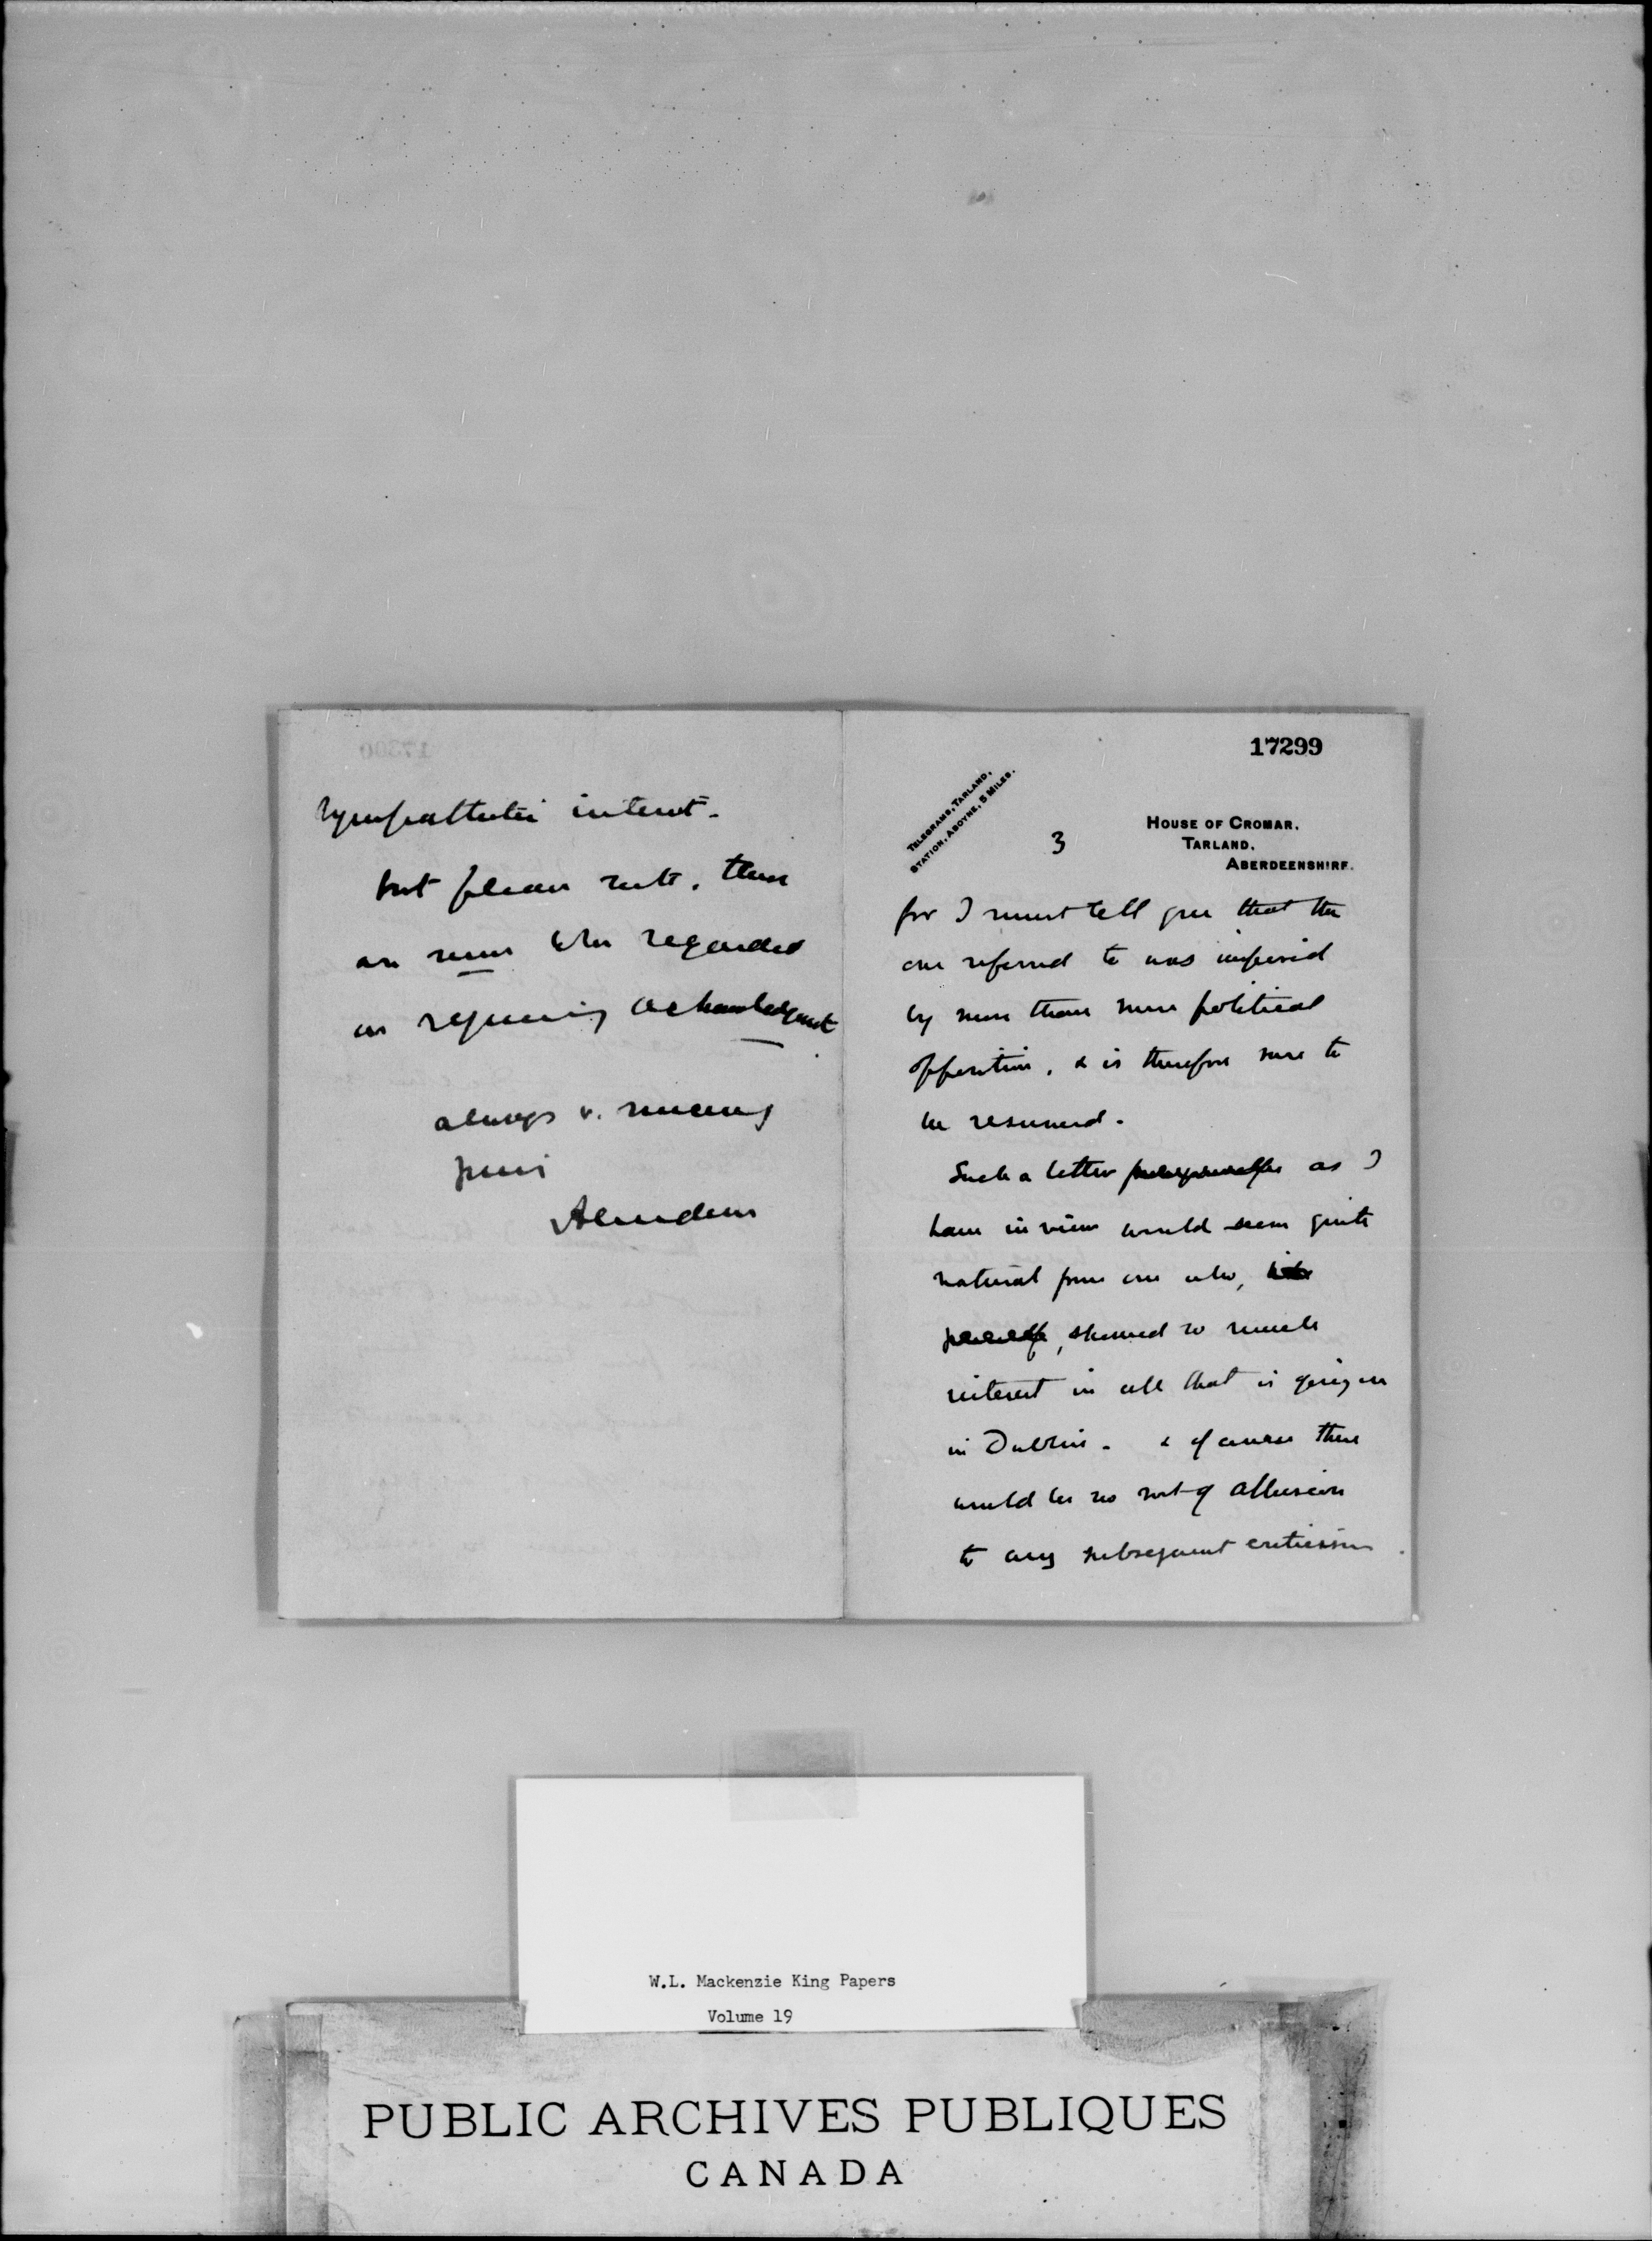 sympathetic interest.
but please note, these
are none to be regarded
as requiring acknowledgment.
always v. sincerely
yours
Aberdeen
17299
TELEGRAMS, TARLAND.
STATION, ABOYNE, 5 MILES.
3
HOUSE OF CROMAR.
TARLAND.
ABERDEENSHIRE.
for I must tell you that the
one referred to was inspired
by more than mere political
opposition, & is therefore sure to
be resumed.
Such a letter as I
have in view would seem quite
natural from one who,
showed so much
interest in all that is going on
in Dublin. & of course there
would be no sort of allusion
to any subsequent criticism.
W.L. Mackenzie King Papers
Volume 19
PUBLIC ARCHIVES PUBLIQUES
CANADA